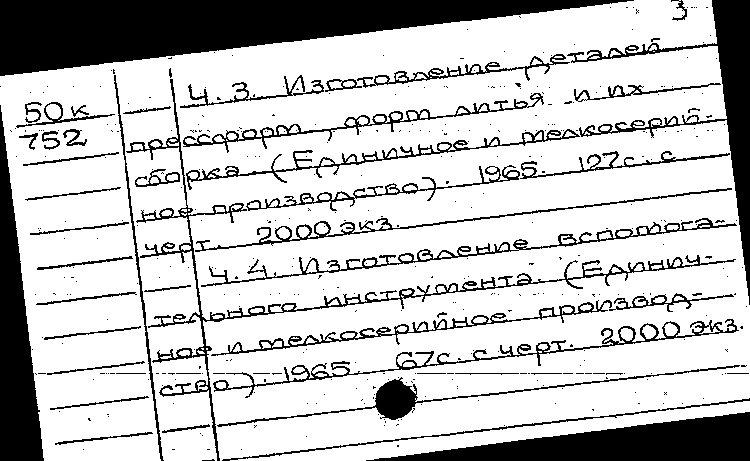 3
50к
752
Ч. 3. Изготовление деталей
прессформ, форм литья и их
сборка. (Единичное и мелкосерий-
ное производство). 1965. 127с. с
черт. 2000 экз.
Ч. 4. Изготовление вспомога-
тельного инструмента. (Единич-
ное и мелкосерийное производ-
ство). 1965 67с. с черт. 2000 экз.